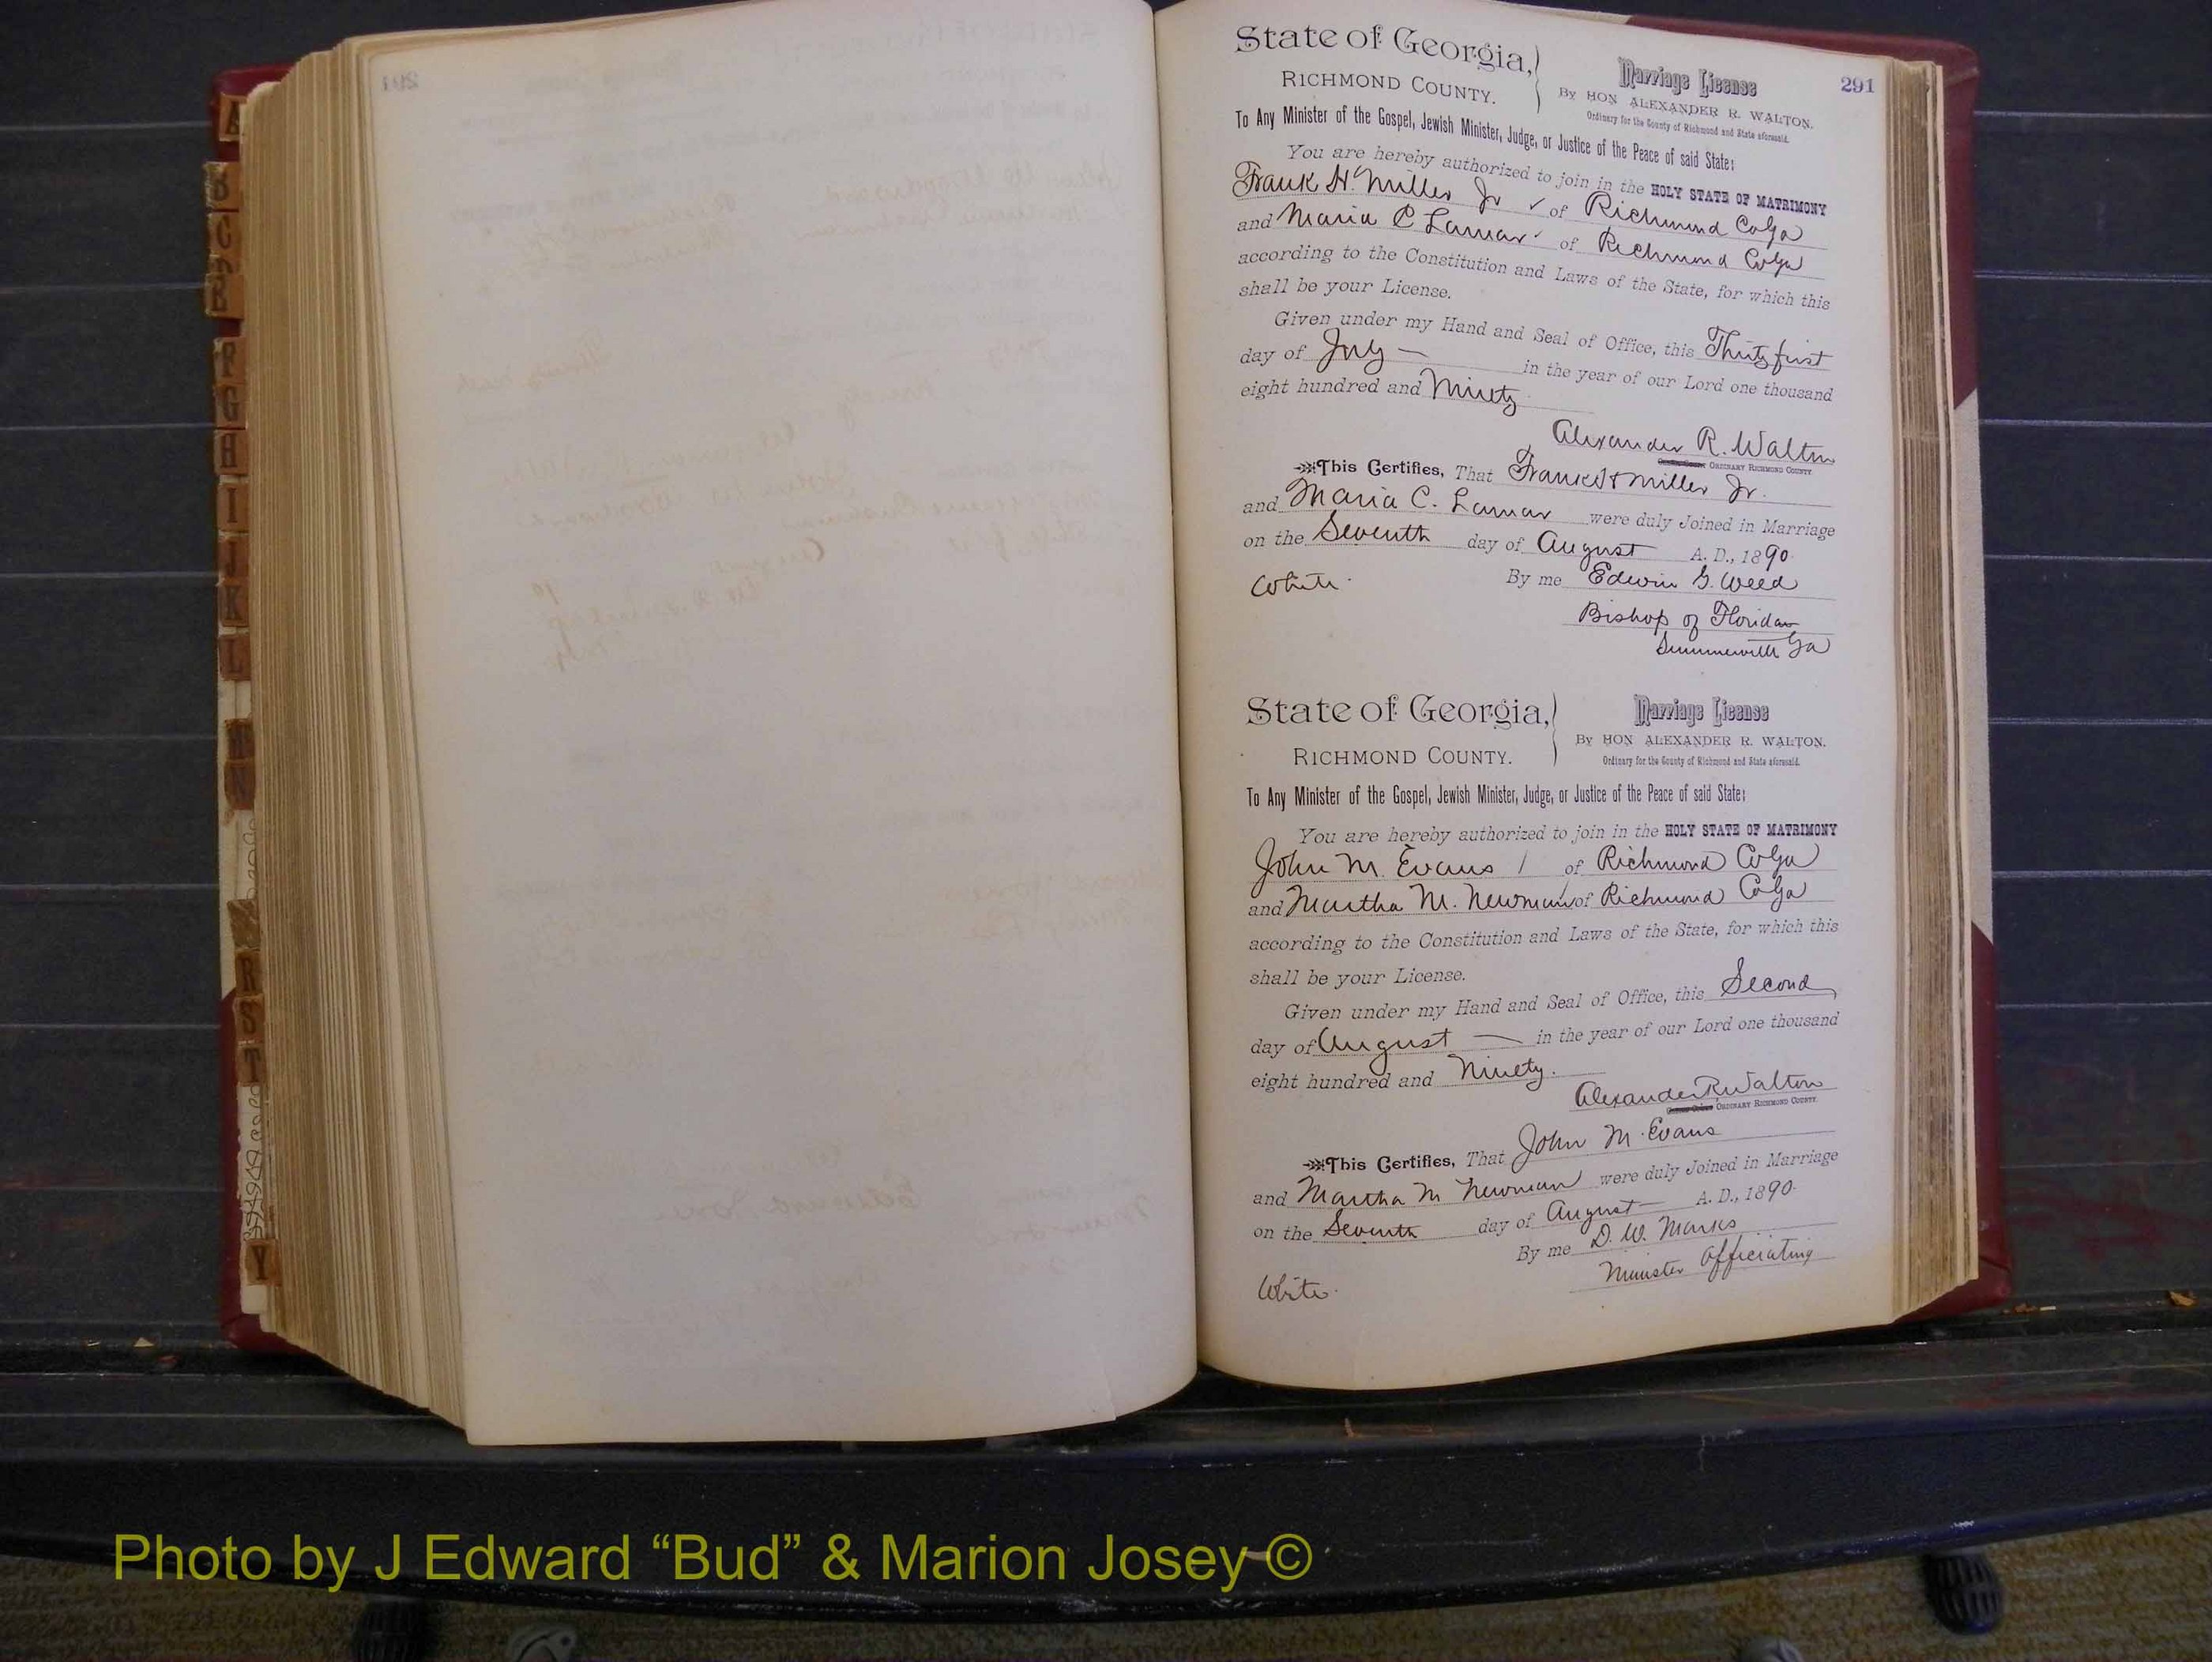 State of Georgia,
RICHMOND COUNTY.
Marriage License
By HON ALEXANDER R. WALTON.
Ordinary for the County of Richmond and State aforesaid.
291
To Any Minister of the Gospel, Jewish Minister, Judge, or Justice of the Peace of said State:
You are hereby authorized to join in the HOLY STATE OF MATRIMONY
Frank H. Miller Jr of Richmond Co Ga
and Maria C Lamar of Richmond Co Ga
according to the Constitution and Laws of the State, for which this
shall be your License.
Given under my Hand and Seal of Office, this Thirty first
day of July in the year of our Lord one thousand
eight hundred and Ninety
Alexander R. Walton
ORDINARY RICHMOND COUNTY.
This Certifies, That Frank H Miller Jr.
and Maria C. Lamar were duly Joined in Marriage
on the Seventh day of August A. D., 1890.
White. By me Edwin G. Weed
Bishop of Florida
Summerville Ga
State of Georgia,
RICHMOND COUNTY.
Marriage License
By HON ALEXANDER R. WALTON.
Ordinary for the County of Richmond and State aforesaid.
To Any Minister of the Gospel, Jewish Minister, Judge, or Justice of the Peace of said State:
You are hereby authorized to join in the HOLY STATE OF MATRIMONY
John M. Evans of Richmond Co Ga
and Martha M. Newman of Richmond Co Ga
according to the Constitution and Laws of the State, for which this
shall be your License.
Given under my Hand and Seal of Office, this Second
day of August in the year of our Lord one thousand
eight hundred and Ninety.
Alexander R Walton
ORDINARY RICHMOND COUNTY.
This Certifies, That John M. Evans
and Martha M Newman were duly Joined in Marriage
on the Seventh day of August A. D., 1890.
By me D. W. Marks
Minister Officiating
White.
B
C
F
G
H
I
J
K
L
N
R
S
T
Y
Photo by J Edward “Bud” & Marion Josey ©